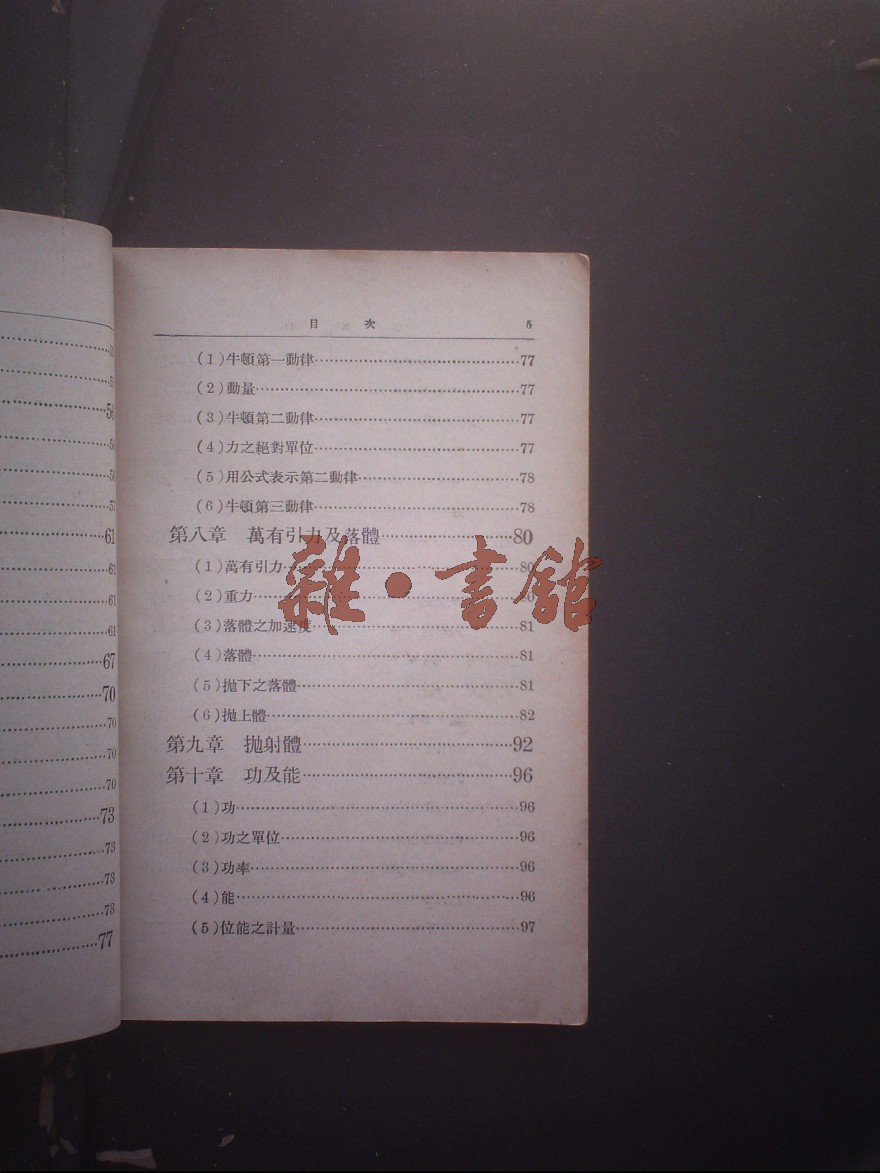 51
5
56
5
56
57
61
61
61
61
67
70
70
70
70
73
73
73
73
77
目 次 5
(1)牛頓第一動律………77
(2)動量………77
(3)牛頓第二動律………77
(4)力之絕對單位………77
(5)用公式表示第二動律………78
(6)牛頓第三動律………78
第八章 萬有引力及落體………80
(1)萬有引力………80
(2)重力………80
(3)落體之加速度………81
(4)落體………81
(5)拋下之落體………81
(6)拋上體………82
第九章 拋射體………92
第十章 功及能………96
(1)功………96
(2)功之單位………96
(3)功率………96
(4)能………96
(5)位能之計量………97
雜·書館